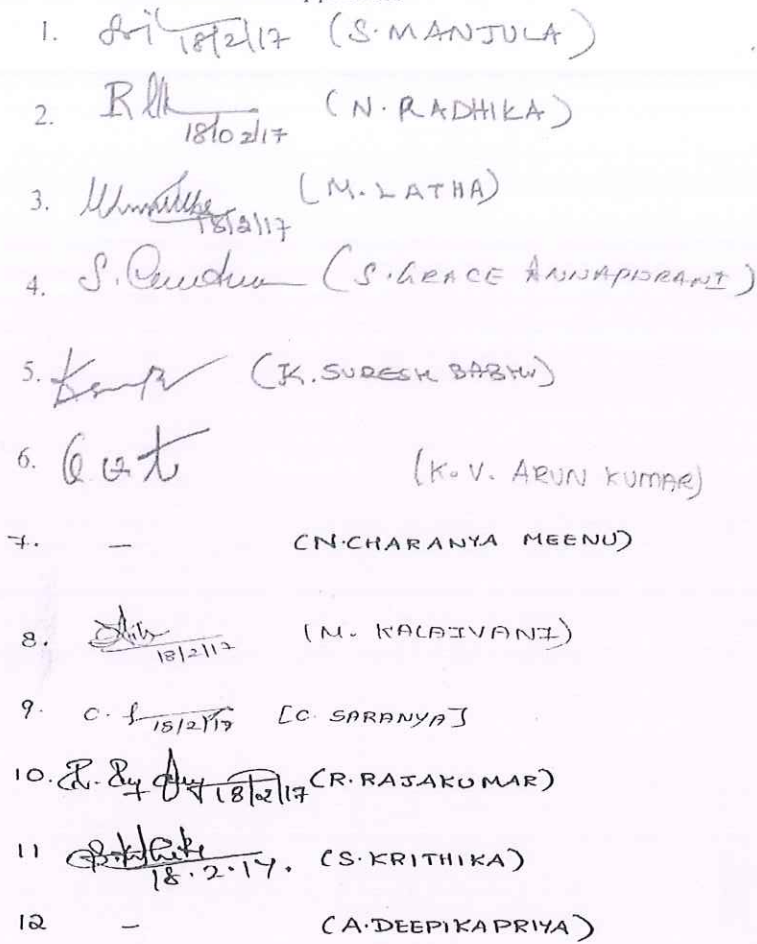 1. 18/2/17 (S. MANJULA)
2. 18/02/17 (N. RADHIKA)
3. 18/2/17 (M. LATHA)
4. S. (S. GRACE ANNAPURANI)
5. (K. SURESH BABHU)
6. (K. V. ARUN KUMAR)
7. – (N. CHARANYA MEENU)
8. 18/2/17 (M. KALAIVANI)
9. C. 18/2/17 [C. SARANYA]
10. R. 18/02/17 (R. RAJAKUMAR)
11 18.2.17. (S. KRITHIKA)
12 – (A. DEEPIKAPRIYA)